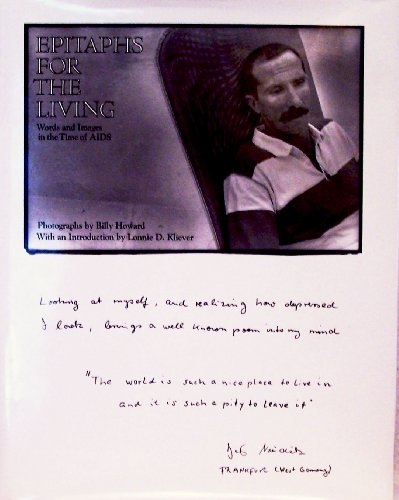 EPITAPHS
FOR
THE
LIVING
Words and Images
in the Time of AIDS
Photographs by Billy Howard
With an Introduction by Lonnie D. Kliever
Looking at myself, and realizing how depressed
I look, brings a well known poem into my mind
"The world is such a nice place to live in
and it is such a pity to leave it"
FRANKFURT (West Germany)